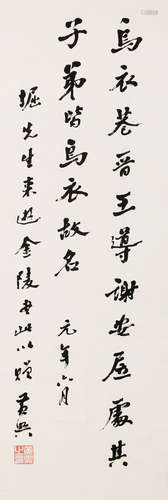 烏衣巷晉王導謝安居處其
子弟皆烏衣故名
元年六月
堀先生来遊金陵書此以贈 黃興